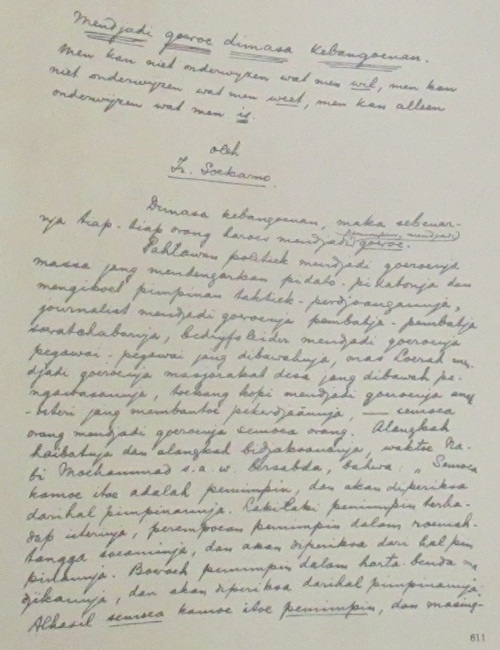 Mendjadi goeroe dimasa kebangoenan.
Men kan niet onderwijzen wat men wil, men kan
niet onderwijzen wat men weet, men kan alleen
onderwijzen wat men is.
oleh
Ir. Soekarno.
Dimasa kebangoenan, maka sebenar-
nja tiap-tiap orang haroes mendjadi (pemimpin, mendjadi) goeroe.
Pahlawan politiek mendjadi goeroenja
massa jang mendengarkan pidato-pidatonja dan
mengikoet pimpinan taktiek-perdjoangannja,
journalist mendjadi goeroenja pembatja-pembatja
soeratchabarnja, bedrijfsleider mendjadi goeroenja
pegawai-pegawai jang dibawahnja, loerah men-
djadi goeroenja masjarakat desa jang dibawah pe-
ngawasannja, toekang kopi mendjadi goeroenja
-isteri jang membantoe pekerdjaännja, — semoea
orang mendjadi goeroenja semoea orang. Alangkah
haibatnja dan alangkah bidjaksananja, waktoe Na-
bi Mochammad s.a.w. bersabda, bahwa: „Semoea
kamoe itoe adalah pemimpin, dan akan diperiksa
darihal pimpinannja. Lakilaki pemimpin terha-
dap isterinja, perempoean pemimpin dalam roemah-
tangga soeaminja, dan akan diperiksa dari hal pim
pinannja. Boedjang pemimpin dalam harta-benda ma
djikannja, dan akan diperiksa darihal pimpinannja.
Alhasil semoea kamoe itoe pemimpin, dan masing-
611